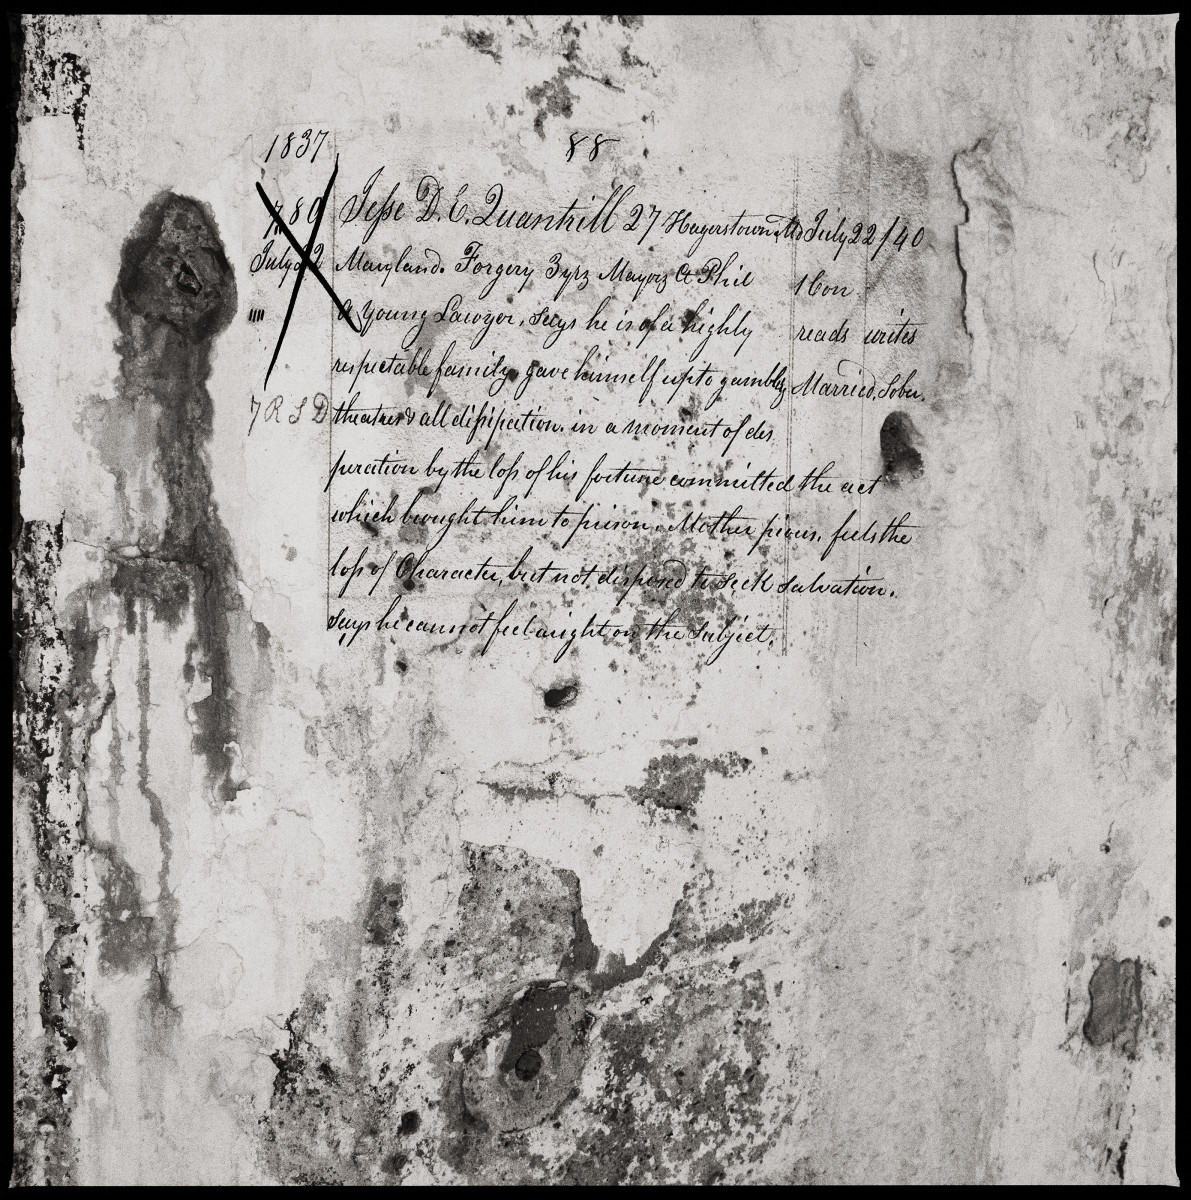 1837 88
780 Jesse D. E. Quantrill 27 Hagerstown, Md July 22/40
July 22 Maryland. Forgery 3 yrs Mayors Ct Phil 1 Con
a young Lawyer, says he is of a highly reads writes
respectable family, gave himself up to gambling Married, Sober.
7 R S D theatres & all dissipation. in a moment of des
peration by the loss of his fortune committed the act
which brought him to prison. Mother pious. feels the
loss of Character, but not disposed to seek salvation.
says he cannot feel aught on the subject.